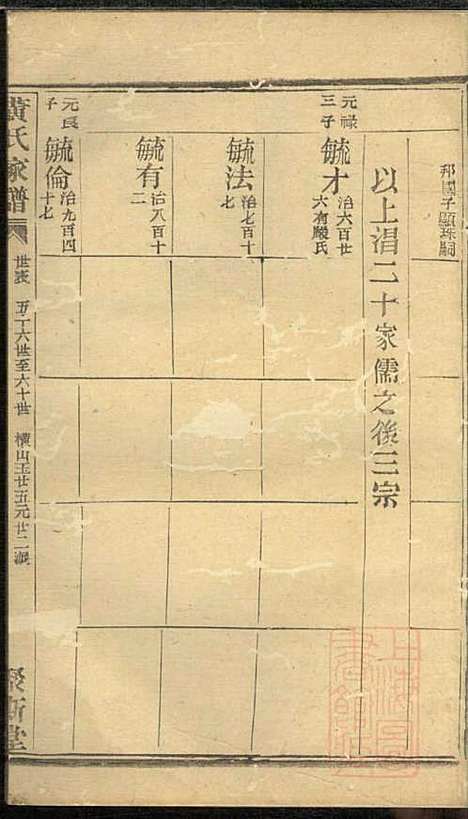 邦國子顯珠嗣
以上湒二十家儒之後三宗
元祿三子
毓才 治六百廿六有嚴氏
毓法 治七百十七
毓有 治八百十二
元良子
毓倫 治九百四十七
黃氏家譜
世表 五十六世至六十世 橫山玉廿五元廿二派
聚斯堂